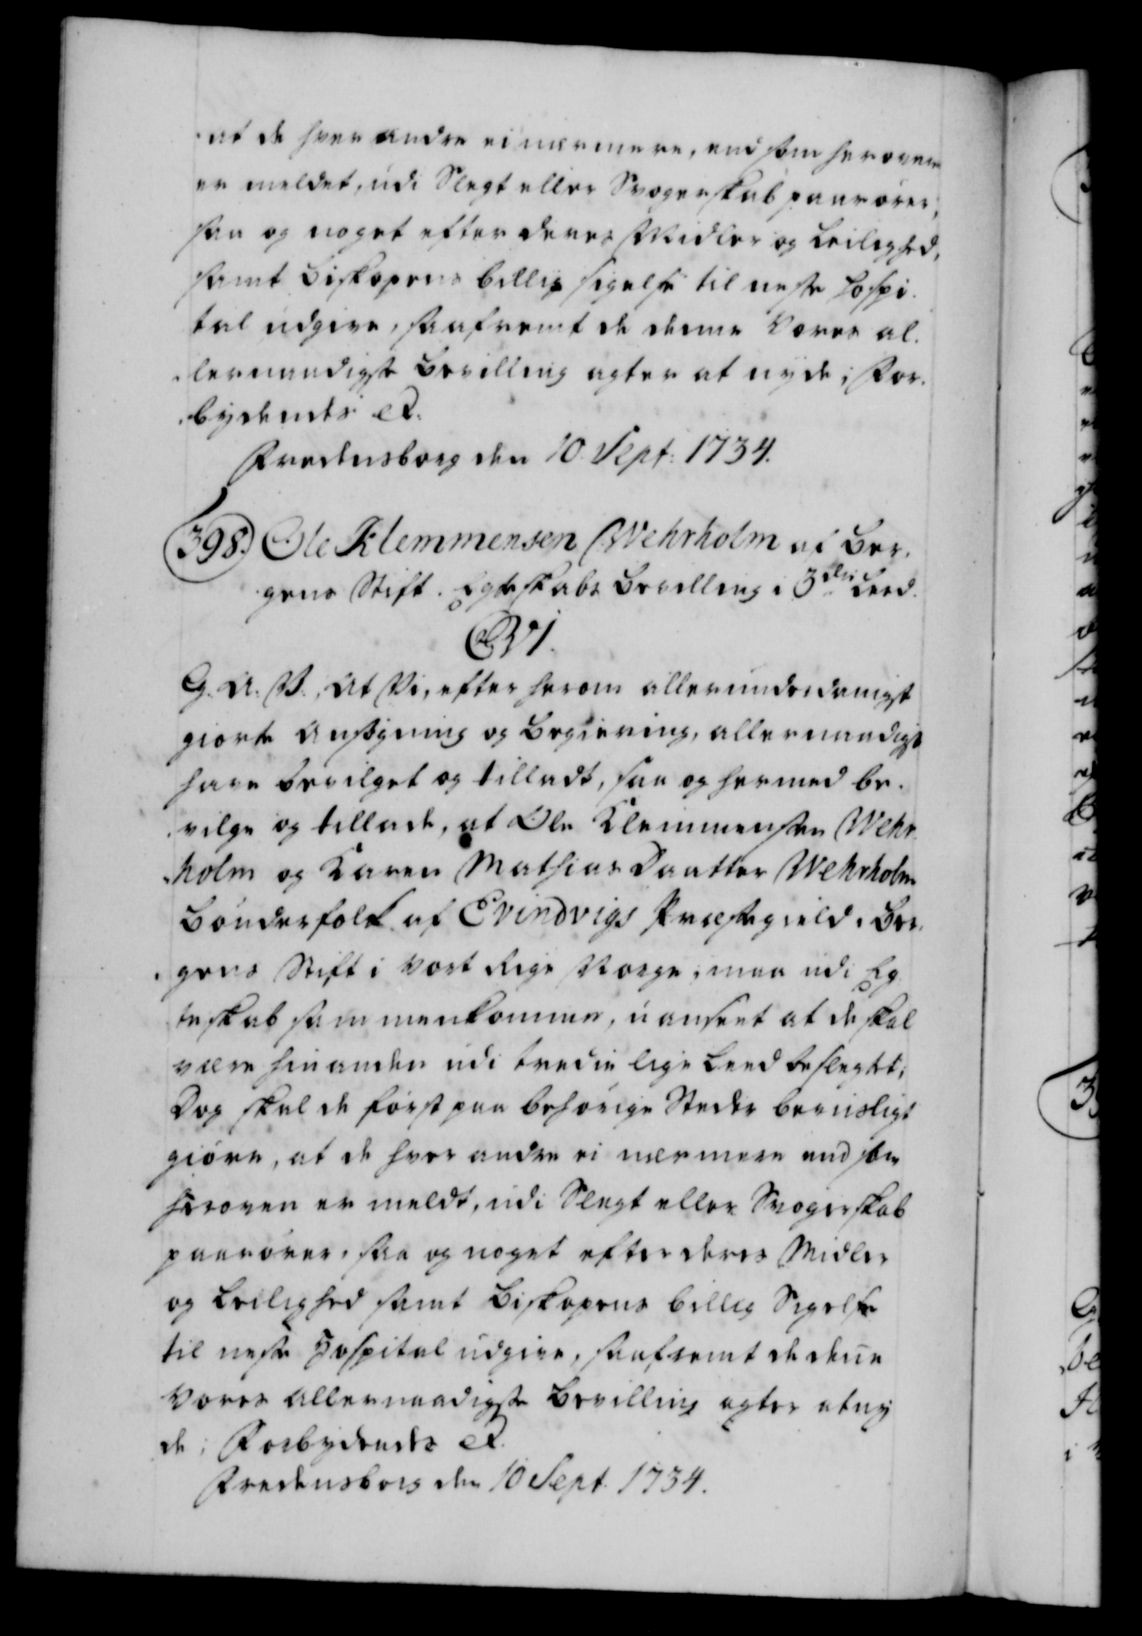 at de hver andre ei nærmere, end som heroven
er meldet, udi Slegt eller Svogerskab paarörer,
saa og noget efter deres Midler og Leilighed,
samt Biskopens billig sigelse til neste Hospi-
tal udgive, saafremt de denne Vores al-
lernaadigste Bevilling agter at nyde; For-
bydendes etc.
Fredensborg den 10. Sept: 1734.
398.) Ole Klemmensen Wehrholm af Ber-
gens Stift. Egteskabs Bevilling i 3die Leed.
C. VI.
G. A. V., At Vi, efter herom allerunderdanigst
giorte Ansögning og Begiering, allernaadigst
have bevilget og tilladt, saa og hermed be-
vilge og tillade, at Ole Klemmensen Wehr-
holm og Karen Mathias Daatter Wehrholm
Bönderfolk af Evindvigs Præstegield i Ber-
gens Stift i Vort Rige Norge, maa udi Eg-
teskab sammenkomme, uanseet at de skal
være hinanden udi tredie lige Leed beslegtet;
Dog skal de först paa behörige Steder bevisligt
giöre, at de hver andre ei nærmere end som
heroven er meldt, udi Slegt eller Svogerskab
paarörer, saa og noget efter deres Midler
og Leilighed samt Biskopens billig Sigelse
til neste Hospital udgive, saafremt de denne
Vores allernaadigste Bevilling agter at ny-
de; Forbydendes etc.
Fredensborg den 10 Sept. 1734.